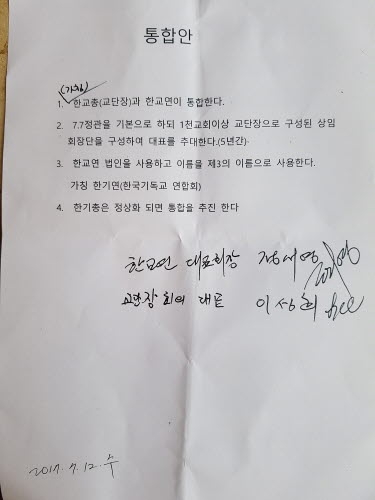 통합안
(가칭)
1. 한교총(교단장)과 한교연이 통합한다.
2. 7.7정관을 기본으로 하되 1천교회이상 교단장으로 구성된 상임
회장단을 구성하여 대표를 추대한다.(5년간)
3. 한교연 법인을 사용하고 이름을 제3의 이름으로 사용한다.
가칭 한기연(한국기독교 연합회)
4. 한기총은 정상화 되면 통합을 추진 한다
한교연 대표회장 정서영
교단장 회의 대표 이성희
2017.7.12.수